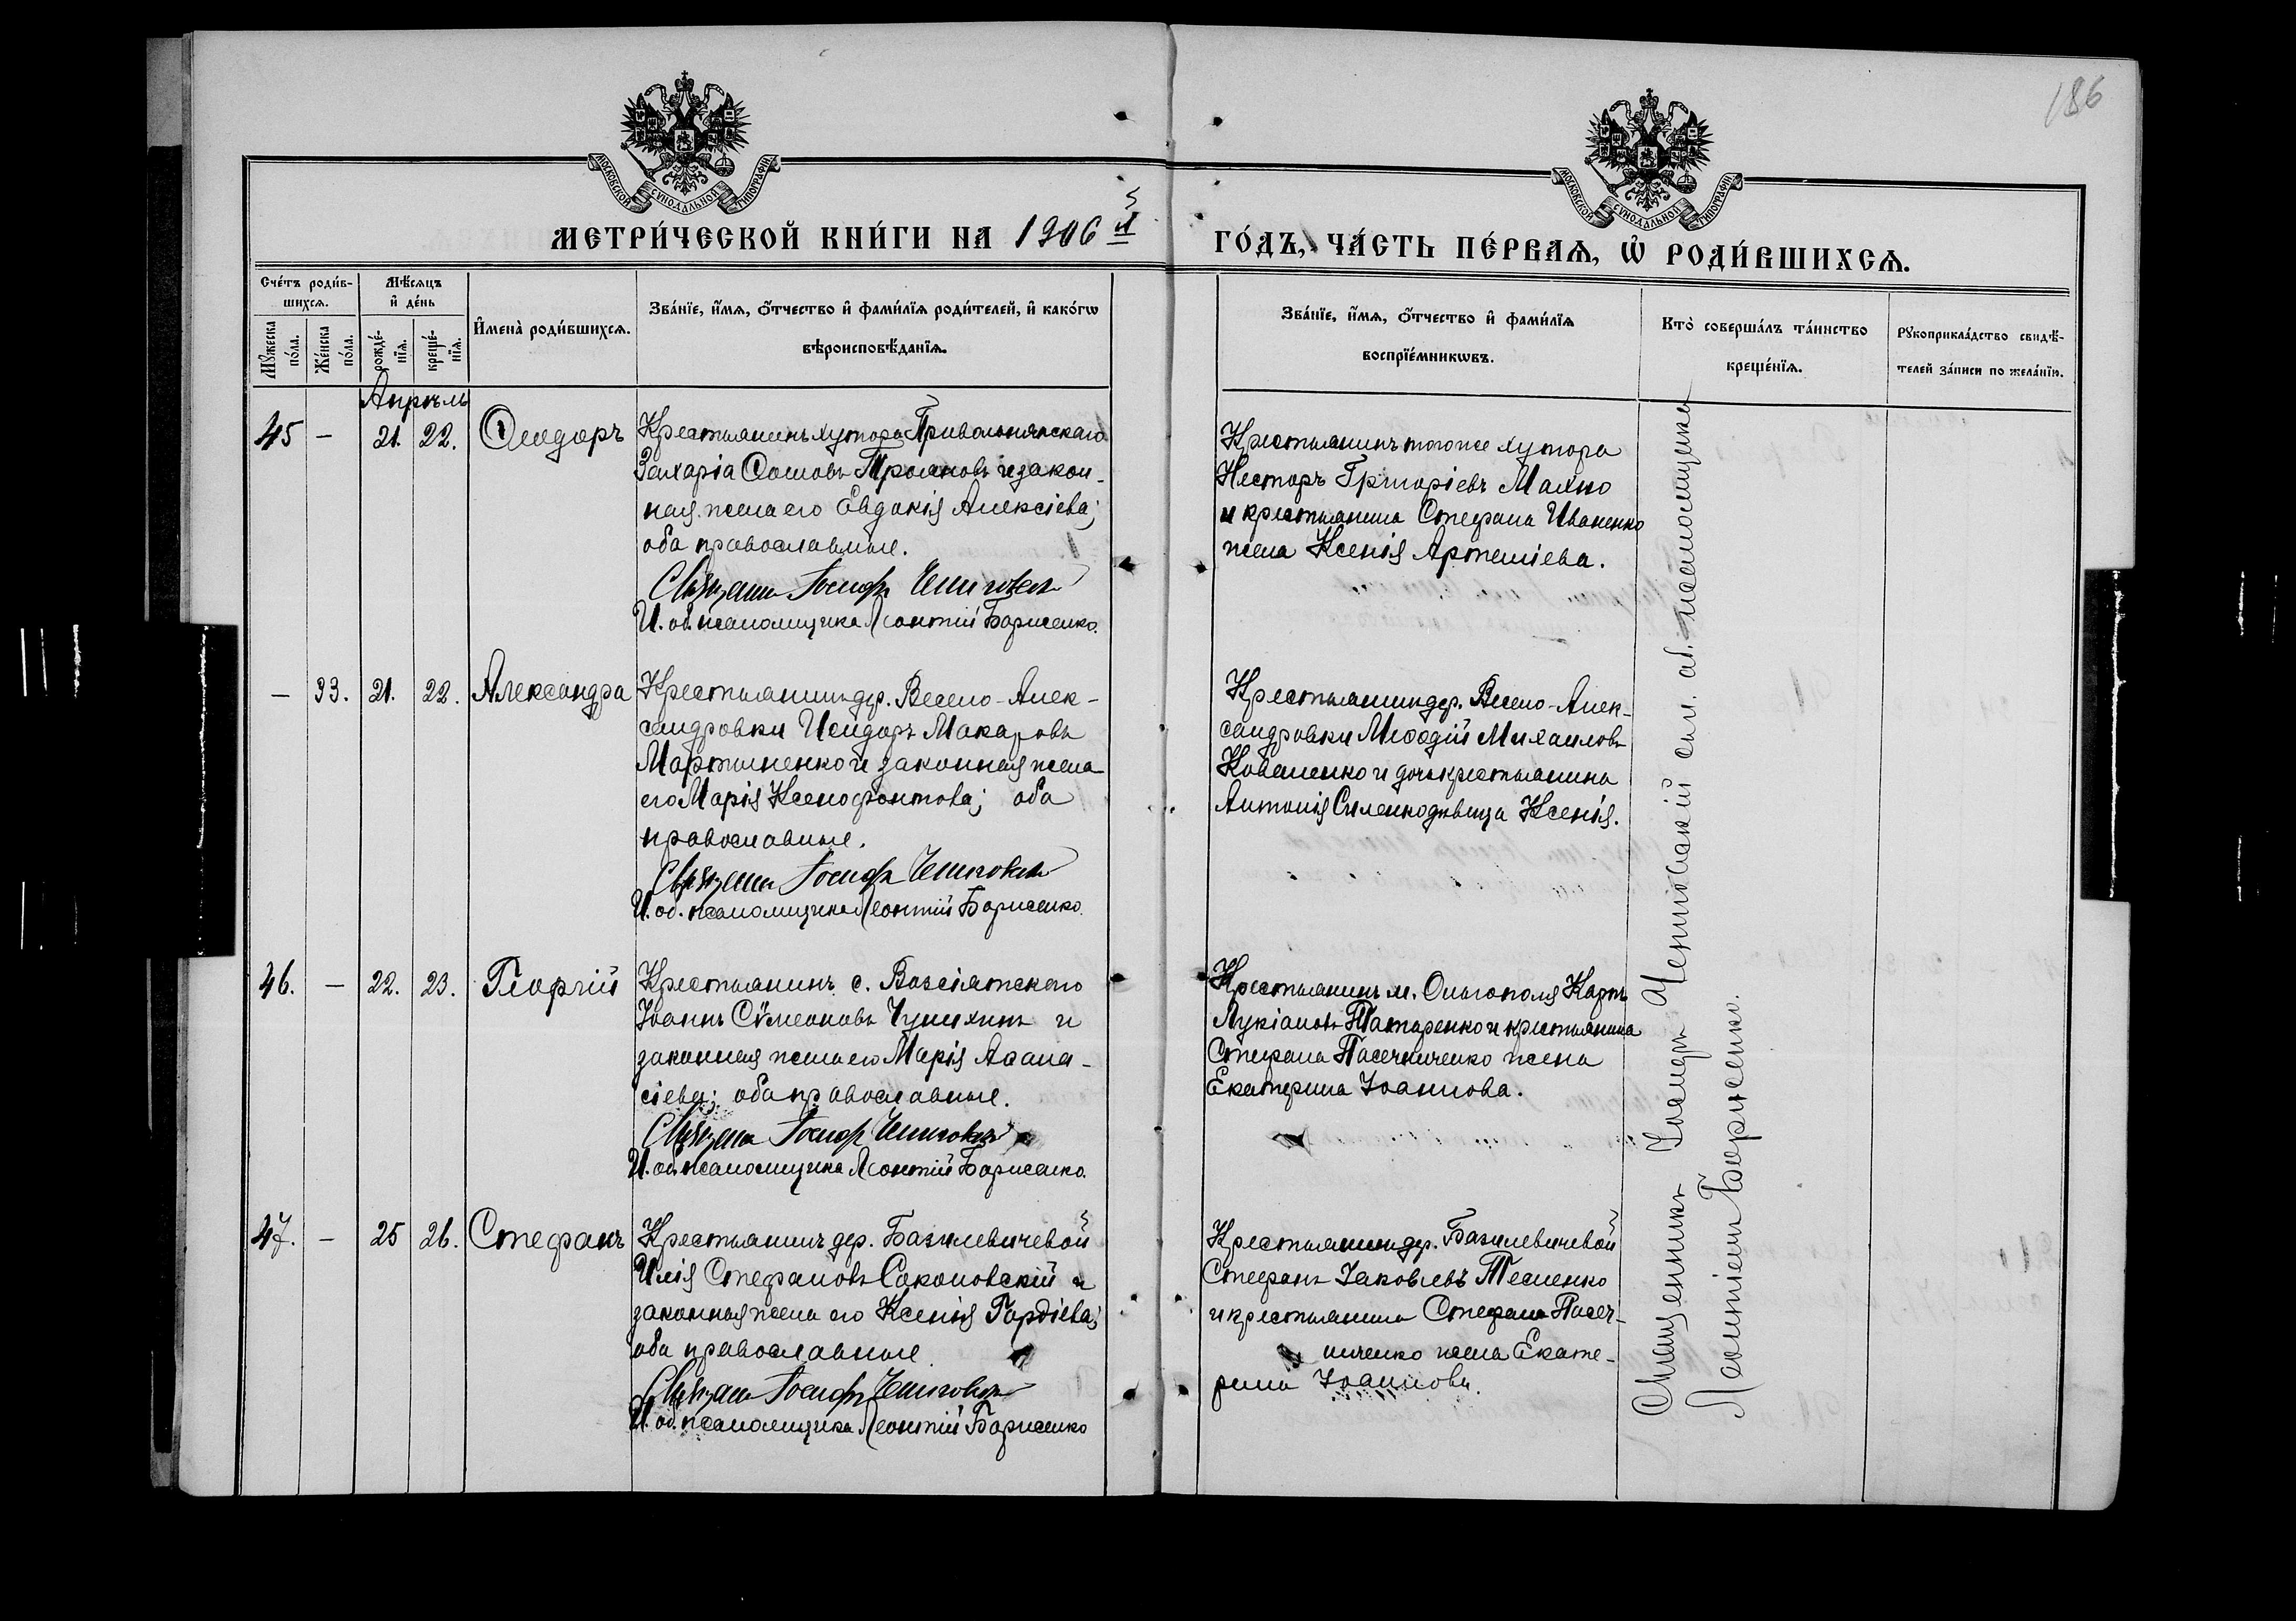 186
МОСКОВСКОЙ СѴНОДАЛЬНОЙ ТИПОГРАФІИ
МОСКОВСКОЙ СѴНОДАЛЬНОЙ ТИПОГРАФІИ
МЕТРИ́ЧЕСКОЙ КНИ́ГИ НА 1906й
ГО́ДЪ, ЧА́СТЬ ПЕ́РВАѦ, Ѡ҆ РОДИ́ВШИХСѦ.
Сче́тъ роди́в-
шихсѧ.
Мꙋ́жеска по́ла.
Же́нска по́ла.
Мѣ́сѧцъ
и҆ де́нь
рожде́-
нїѧ.
креще́-
нїѧ.
И҆мена̀ роди́вшихсѧ.
Зва́нїе, и҆́мѧ, ѻ҆́тчество и҆ фами́лїѧ роди́телей, и҆ како́гѡ
вѣроисповѣ́данїѧ.
Зва́нїе, и҆́мѧ, ѻ҆́тчество и҆ фами́лїѧ
воспрїе́мникѡвъ.
Кто̀ соверша́лъ та́инство
креще́нїѧ.
Рꙋкоприкла́дство свидѣ́-
телей за́писи по жела́нїю.
Апрѣль
45 — 21. 22. Ѳеодоръ
Крестьянинъ хутора Привольнянскаго
Захарія Сошовъ Трояновъ и закон-
ная жена его Евдокія Алексіева;
оба православные.
Священ. Іосифъ
И. об. псаломщика Леонтій Борисенко.
Крестьянинъ того же хутора
Несторъ Григоріевъ Махно
и крестьянина Стефана Иваненко
жена Ксенія Артеміева.
— 33. 21. 22. Александра
Крестьянин дер. Весело-Алек-
сандровки Исидоръ Макаровъ
Мартыненко и законная жена
его Марія Ксенофонтова; оба
православные.
Священ. Іосифъ
И. об. псаломщика Леонтій Борисенко.
Крестьянин дер. Весело-Алек-
сандровки Меѳодій Михаиловъ
Коваленко и дочь крестьянина
Антонія Силенко дѣвица Ксенія.
46. — 22. 23. Георгій
Крестьянинъ с. Возсіятского
Іоаннъ Сѵмеоновъ Чумихин и
законная жена его Марія Аѳана-
сіева; оба православные.
Священ. Іосифъ
И. об. псаломщика Леонтій Борисенко.
Крестьянинъ м. Ольгополя Карпъ
Лукіановъ Татаренко и крестьянина
Стефана Пасечниченко жена
Екатерина Іоаннова.
47. — 25 26. Стефанъ
Крестьянинъ дер. Базилевичевой
Илія Стефановъ Соколовскій и
законная жена его Ксенія Гордіева;
оба православные.
Священ. Іосифъ
И. об. псаломщика Леонтій Борисенко
Крестьянин дер. Базилевичевой
Стефанъ Іаковлевъ Тесленко
и крестьянина Стефана Пасеч-
ниченко жена Екате-
рина Іоаннова.
Священникъ Іосифъ съ и. об. псаломщика
Леонтіемъ Борисенко.